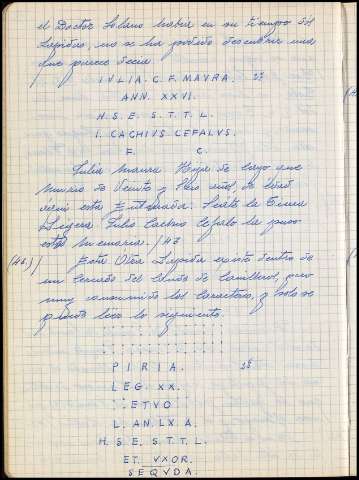 el Doctor Solano haber en su tiempo dos
Lapidas, no se ha podido descubrir una
que parece decia
IVLIA. C. F. MAVRA. 1ª
ANN. XXVI.
H. S. E. S. T. T. L.
I. CACHIVS CEFALVS.
F. C.
Julia Maura Hija de Cayo que
murio de Veinte y Seis años de edad
está Enterrada. Seale la Tierra
Ligera. Julio Cachio Cefalo la puso
esta memoria. /43
(44.)/ Esta Otra Lapida existe dentro de
un Cercado del Conde de Canilleros, pero
muy consumido los Caracteres, y solo se
puede leer lo siguiente.
P I R I A. 2ª
LEG. XX.
. ETVO
L. AN. LX A.
H. S. E. S. T. T. L.
ET VXOR.
SEQVDA.